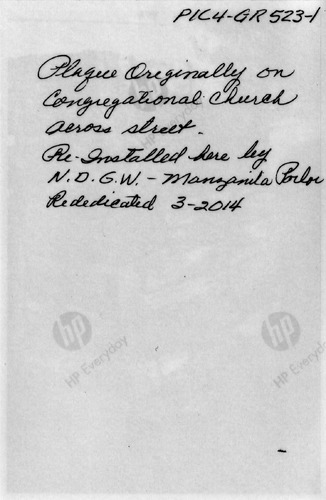 PIC4-GR523-1
Plaque Originally on
Congregational Church
across street.
Re-Installed here by
N.D.G.W. - Manzanita Parlor
Rededicated 3-2014
hp
HP Everyday
hp
HP Everyday